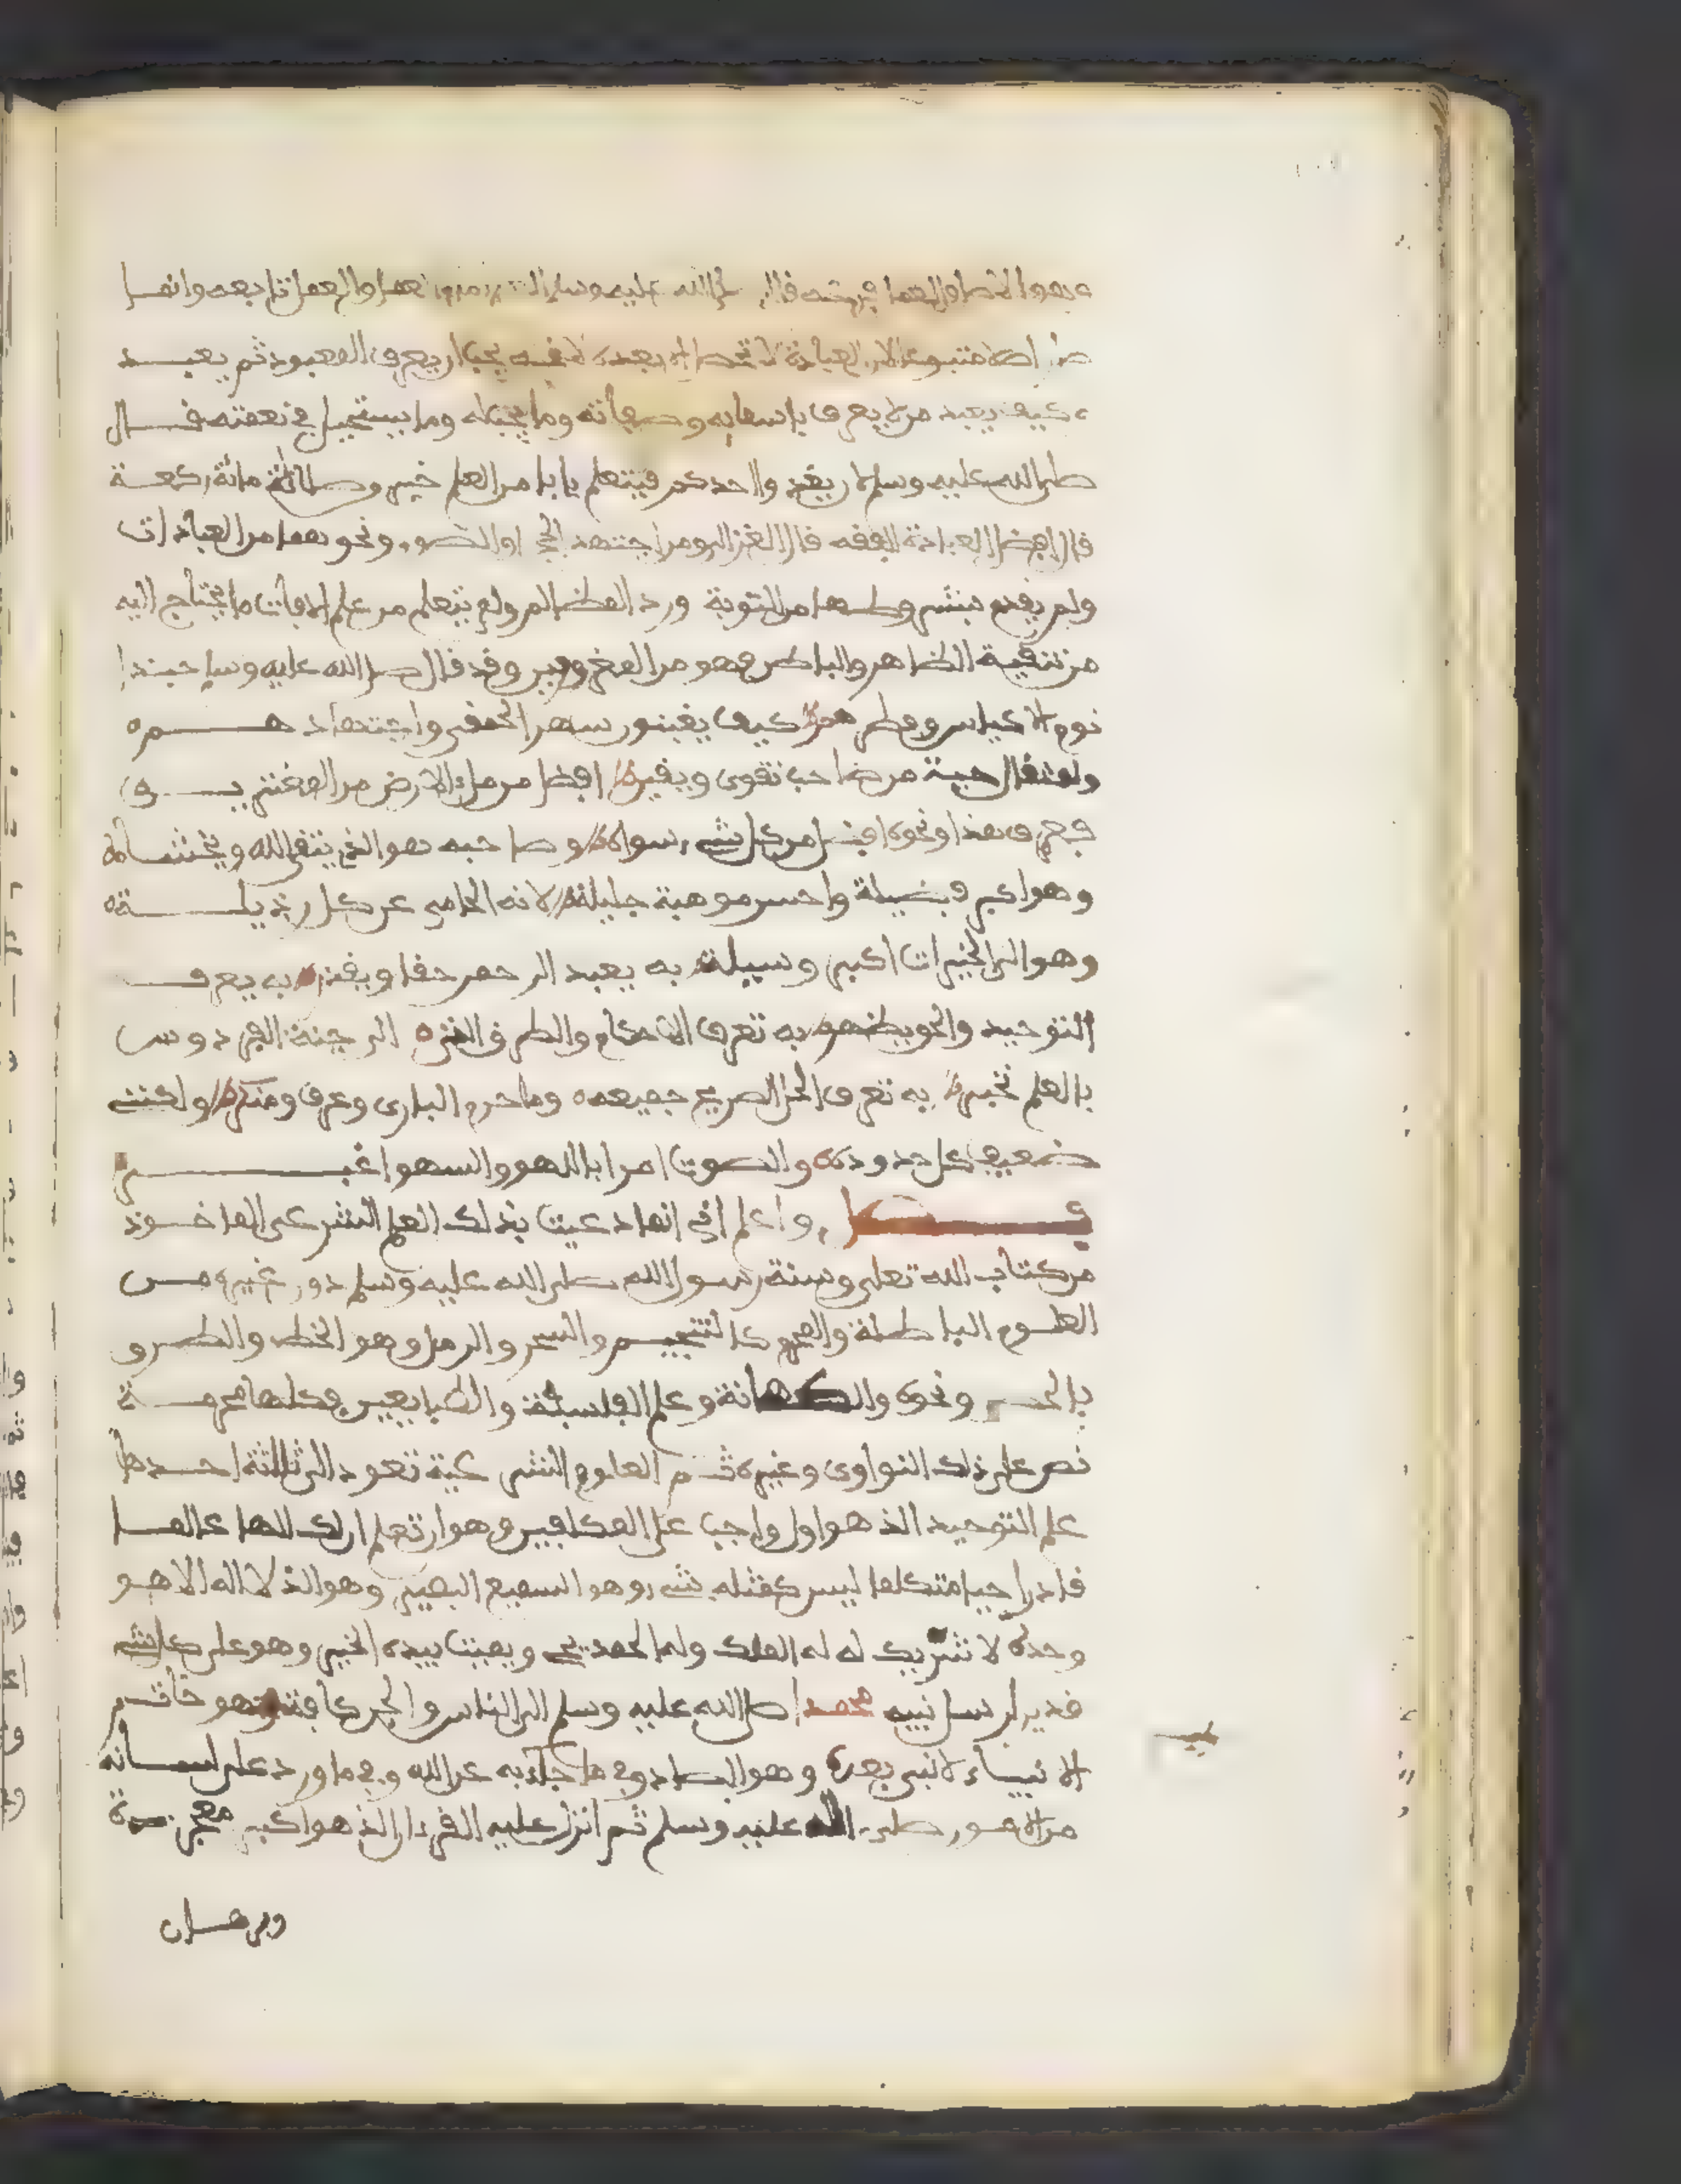 وهو الاصل والعمل فرعه قال صلى الله عليه وسلم العلم امام العمل والعمل تابعه وانما
صار اصلا متبوعا لان العبادة لا تحصل الا بعده لانه يجب ان يعرف المعبود ثم يعبد
وكيف يعبد من لا يعرف باسمايه وصفاته وما يجب له وما يستحيل في نعمته قال
صلى الله عليه وسلم لان يغدو احدكم فيتعلم بابا من العلم خير من صلاة مائة ركعة
قال افضل العبادة الفقه قال الغزالي ومن اجتهد الحج او الصوم ونحوهما من العبادات
ولم يقم بشروطها من التوبة ورد المظالم ولم يتعلم من علم الافات ما يحتاج اليه
من تنقية الظاهر والباطن فهو من المغرورين وقد قال صلى الله عليه وسلم حبذا
نوم الاكياس وفطرهم كيف يغبنون سهر الحمقى واجتهادهم
ولمثقال حبة من صاحب تقوى ويقين افضل من ملء الارض من المغترين
فحرف هذا ونحوه افضل من كل شيء سواه وصاحبه هو الذي يتقي الله ويخشاه
وهو اكبر فضيلة واحسن موهبة جليلة لانه الحامي عن كل رذيلة
وهو الى الخيرات اكبر وسيلة به يعبد الرحمن حقا وبه يعرف
التوحيد والحق يظهر به تعرف الاحكام والطرق التي الى جنة الفردوس
بالعلم تخبر به تعرف الحل الصريح جميعه وما حرم الباري وعرف ومنكر ولكنني
ضعيف كل حدوده والصوت امرا باللهو والسهو اغبر
فصل واعلم اني انما دعيت بذلك العلم الشرعي الماخوذ
من كتاب الله تعلى وسنة رسول الله صلى الله عليه وسلم دون غيره من
العلوم الباطلة والمحرمة كالتنجيم والسحر والرمل وهو الخط والطرق
بالحصى ونحوه والكهانة وعلم الفلسفة والطبايعيين فكلها محرمة
نص على ذلك النواوي وغيره ثم العلوم الشرعية تعود الى ثلاثة احدها
علم التوحيد الذي هو اول واجب على المكلفين وهو ان تعلم ان لك الها عالما
قادرا حيا متكلما ليس كمثله شيء وهو السميع البصير وهو الذي لا اله الا هو
وحده لا شريك له له الملك وله الحمد يحي ويميت بيده الخير وهو على كل شيء
قدير ارسل نبيه محمدا صلى الله عليه وسلم الى الناس والجن كافة وهو خاتم
الانبياء لا نبي بعده وهو الصادق في ما جاء به عن الله وفي ما ورد على لسانه
من الامور صلى الله عليه وسلم ثم انزل عليه القرءان الذي هو اكبر معجزة
وبرهان